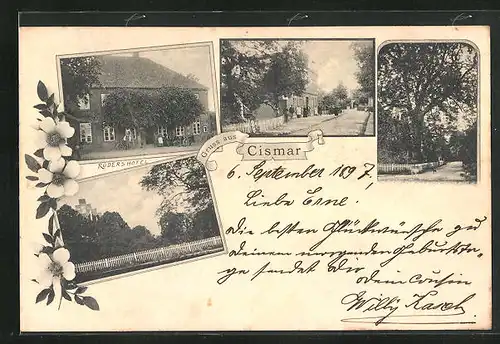 RÖDERS HOTEL
Gruss aus
Cismar
6. September 1897.
Liebe Erne.
Die besten Glückwünsche zu
Deinem morgenden Geburtsta-
ge sendet Dir
Dein Cousin
Willy